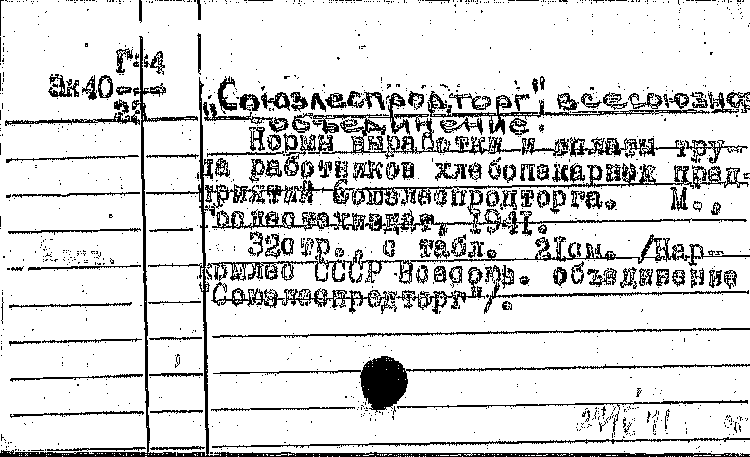 Г-4
Эк40
23
„Союзлеспродторг", всесоюзное
объединение.
Нормы выработки и оплаты тру-
да работников хлебопекарних пред-
приятий Союзлеспродторга. М.,
Гослестехиздат, 1941.
32стр., с табл. 21см. /Нар-
комлес СССР Всесоюз. объединение
"Союзлеспродторг"/.